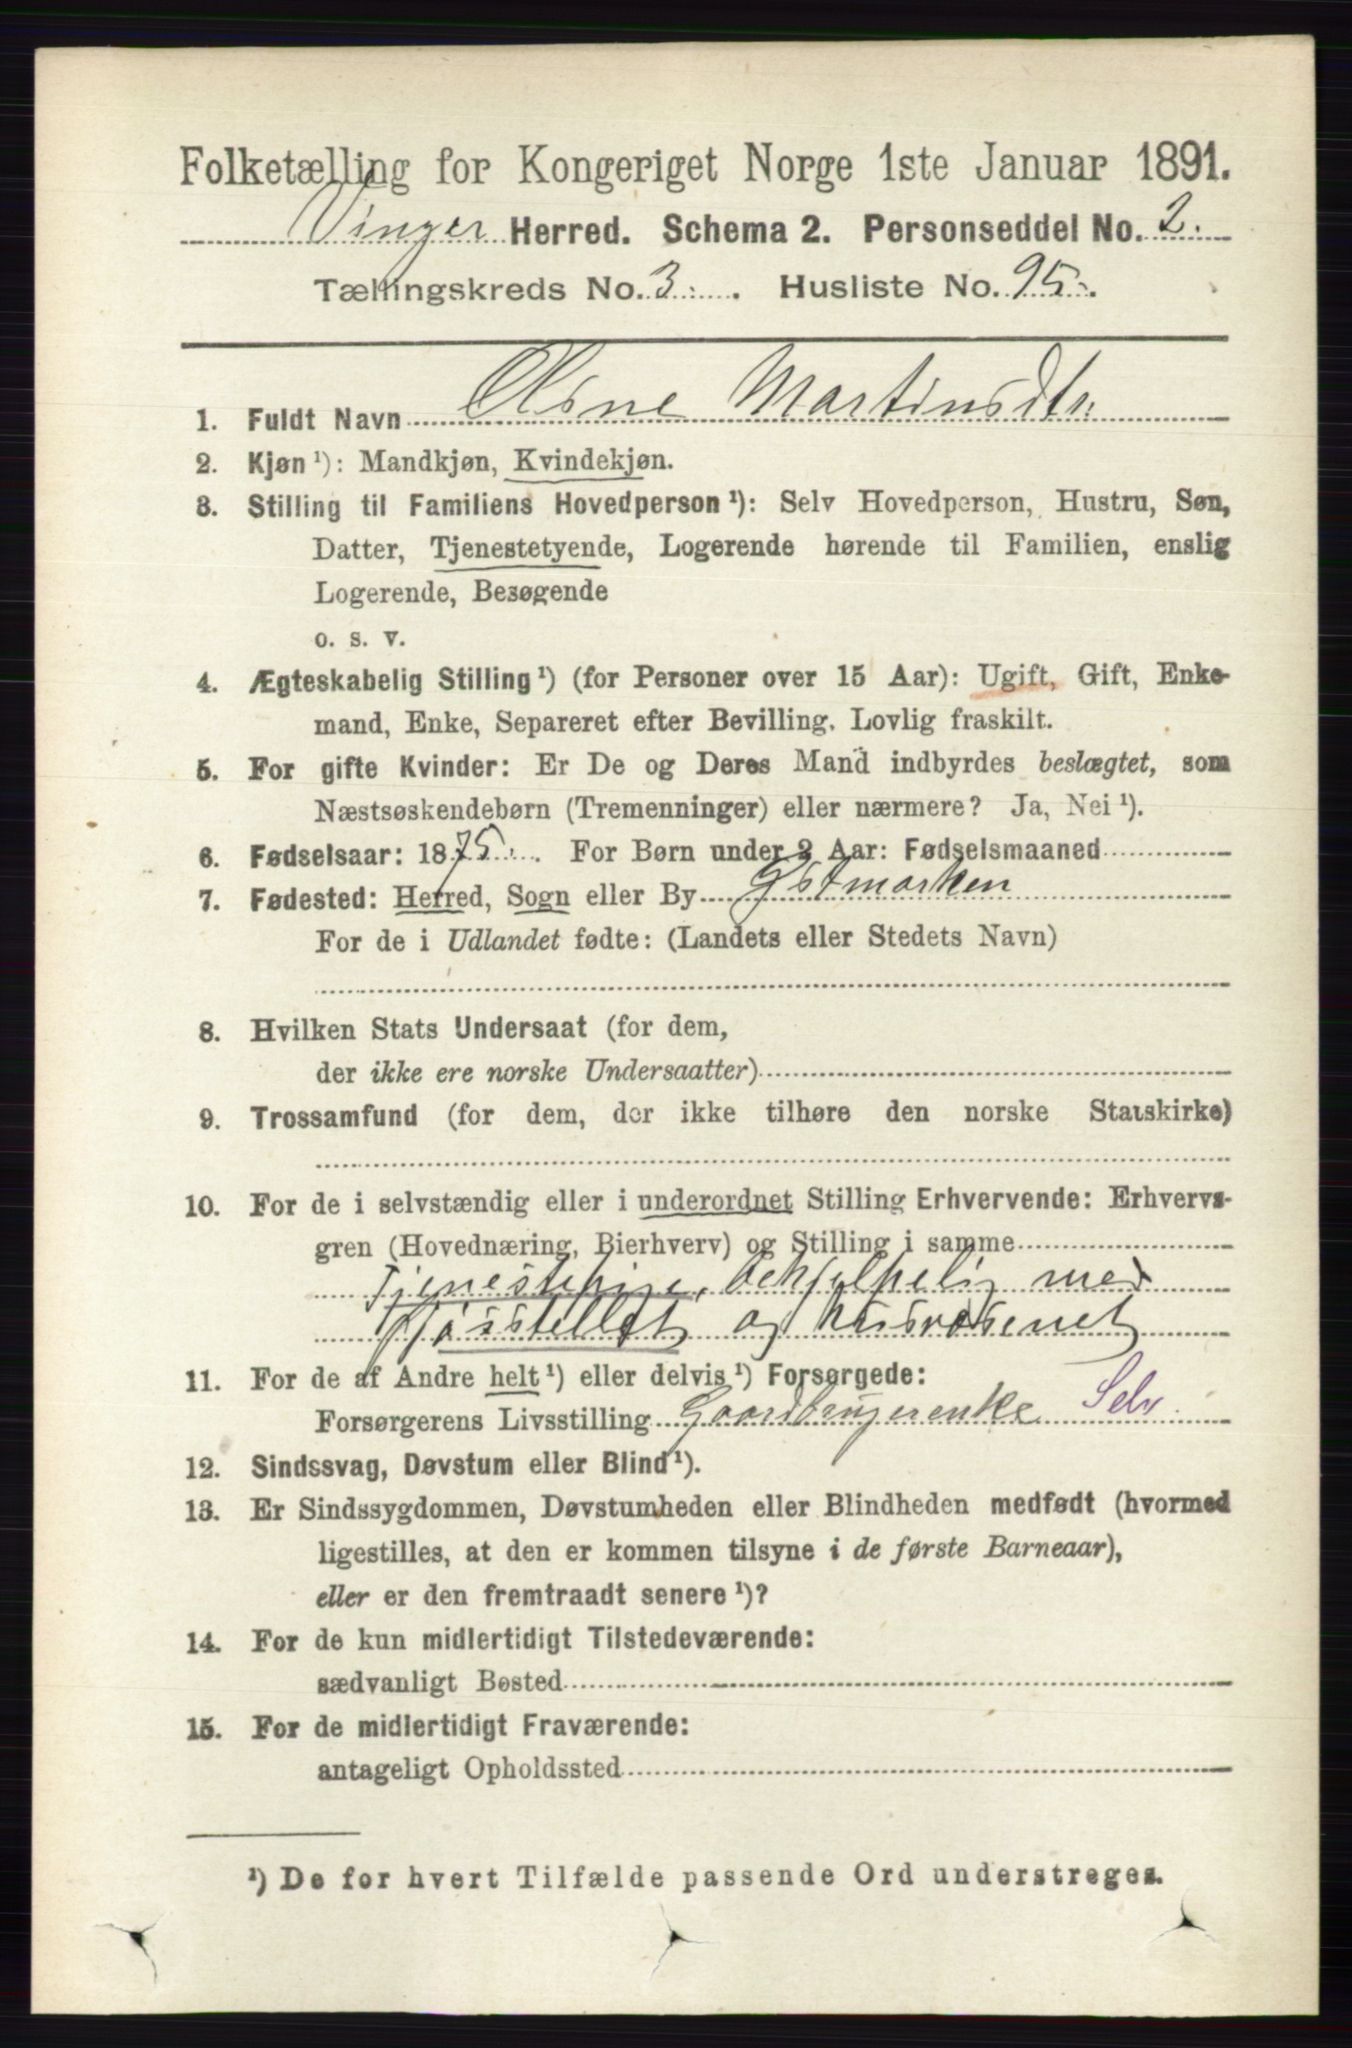 Folketælling for Kongeriget Norge 1ste Januar 1891.
Vinger Herred. Schema 2. Personseddel No. 2.
Tællingskreds No. 3. Husliste No. 95.
1. Fuldt Navn Olsine Martinsdtr.
2. Kjøn ¹): Mandkjøn, Kvindekjøn.
3. Stilling til Familiens Hovedperson ¹): Selv Hovedperson, Hustru, Søn,
Datter, Tjenestetyende, Logerende hørende til Familien, enslig
Logerende, Besøgende
o. s. v.
4. Ægteskabelig Stilling ¹) (for Personer over 15 Aar): Ugift, Gift, Enke-
mand, Enke, Separeret efter Bevilling. Lovlig fraskilt.
5. For gifte Kvinder: Er De og Deres Mand indbyrdes beslægtet, som
Næstsøskendebørn (Tremenninger) eller nærmere? Ja, Nei ¹).
6. Fødselsaar: 1875. For Børn under 2 Aar: Fødselsmaaned
7. Fødested: Herred, Sogn eller By Østmarken
For de i Udlandet fødte: (Landets eller Stedets Navn)
8. Hvilken Stats Undersaat (for dem,
der ikke ere norske Undersaatter)
9. Trossamfund (for dem, der ikke tilhøre den norske Statskirke)
10. For de i selvstændig eller i underordnet Stilling Erhvervende: Erhvervs-
gren (Hovednæring, Bierhverv) og Stilling i samme
Tjenestepige, behjelpelig med
fjøsstellet og
11. For de af Andre helt ¹) eller delvis ¹) Forsørgede:
Forsørgerens Livsstilling Gaardbrugerenke Selv
12. Sindssvag, Døvstum eller Blind ¹).
13. Er Sindssygdommen, Døvstumheden eller Blindheden medfødt (hvormed
ligestilles, at den er kommen tilsyne i de første Barneaar),
eller er den fremtraadt senere ¹)?
14. For de kun midlertidigt Tilstedeværende:
sædvanligt Bosted
15. For de midlertidigt Fraværende:
antageligt Opholdssted
¹) De for hvert Tilfælde passende Ord understreges.